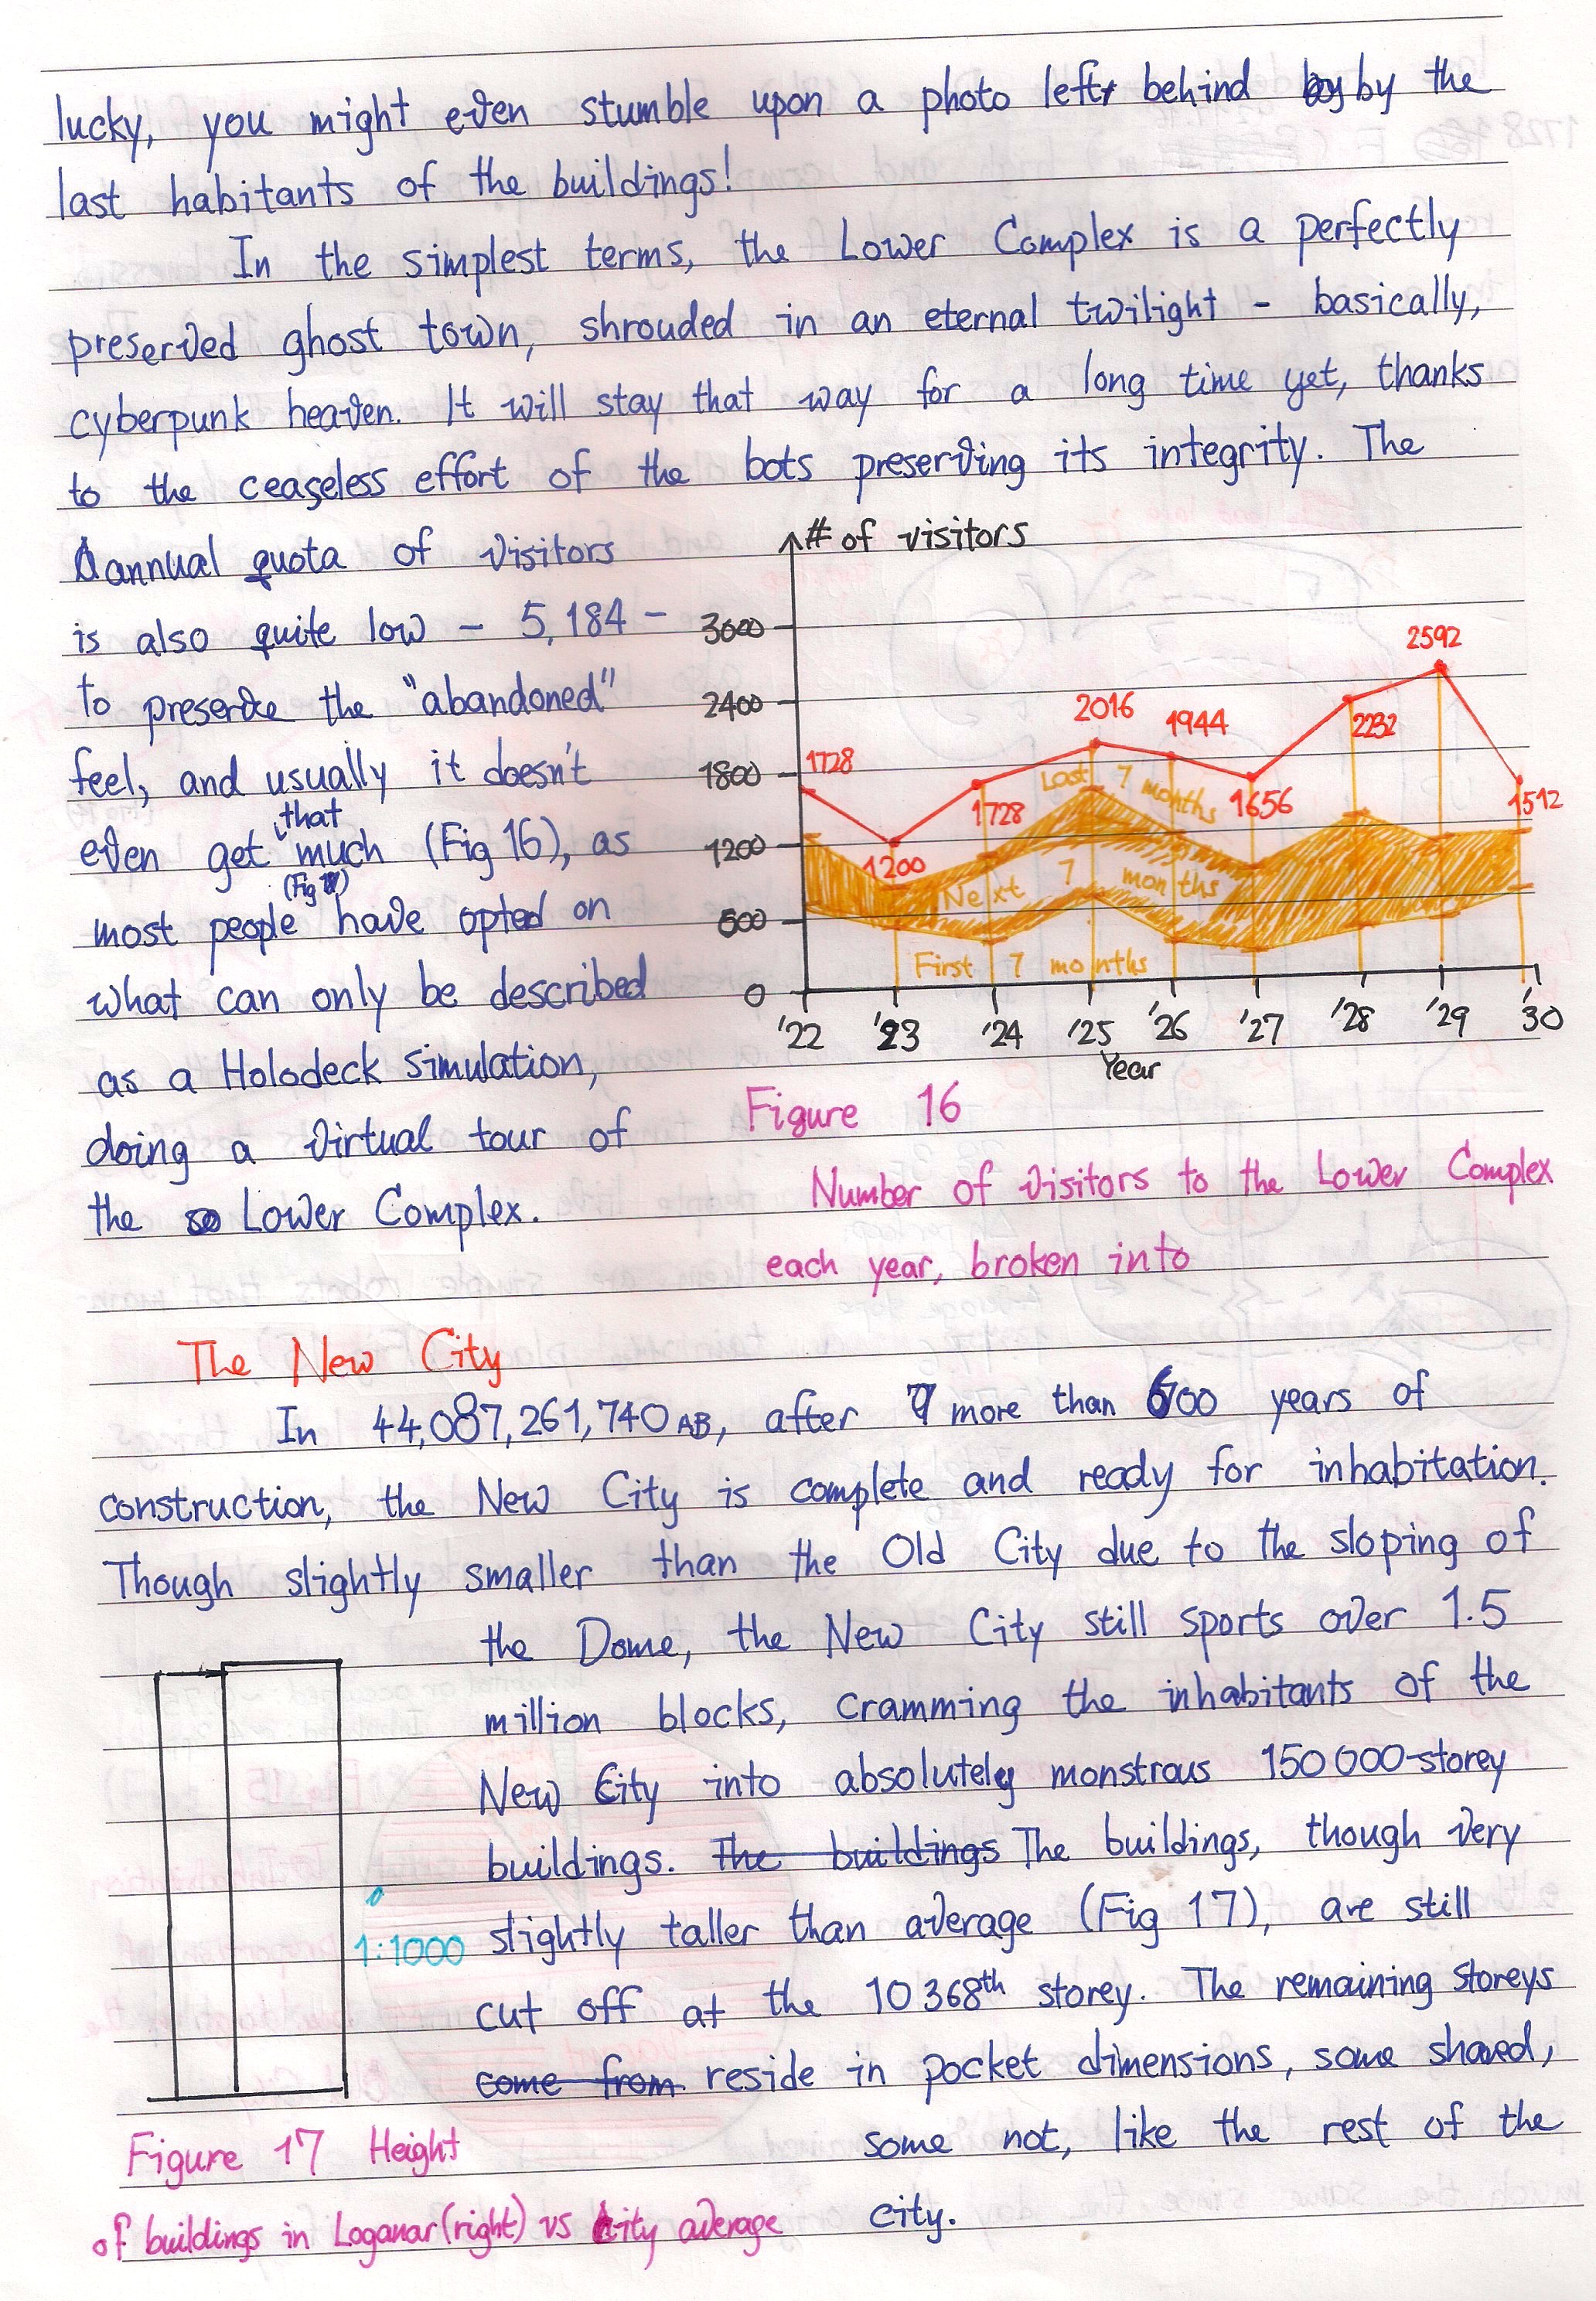 lucky, you might even stumble upon a photo left behind by by the
last habitants of the buildings!
In the simplest terms, the Lower Complex is a perfectly
preserved ghost town, shrouded in an eternal twilight - basically,
cyberpunk heaven. It will stay that way for a long time yet, thanks
to the ceaseless effort of the bots preserving its integrity. The
annual quota of visitors
is also quite low - 5,184 -
to preserve the "abandoned"
feel, and usually it doesn't
that
even get much (Fig 16), as
(Fig
most people have opted on
what can only be described
as a Holodeck simulation,
doing a virtual tour of
the Lower Complex.
# of visitors
3000
2400
1800
1200
600
0
1728
1200
1728
2016
1944
1656
2232
2592
1512
Last 7 months
Next 7 months
First 7 months
'22 '23 '24 '25 '26 '27 '28 '29 '30
Year
Figure 16
Number of visitors to the Lower Complex
each year, broken into
The New City
In 44,087,261,740 AB, after more than 600 years of
construction, the New City is complete and ready for inhabitation.
Though slightly smaller than the Old City due to the sloping of
the Dome, the New City still sports over 1.5
million blocks, cramming the inhabitants of the
New City into absolutely monstrous 150 000-storey
buildings. The buildings The buildings, though very
slightly taller than average (Fig 17), are still
cut off at the 10 368th storey. The remaining storeys
come from reside in pocket dimensions, some shared,
some not, like the rest of the
city.
1:1000
Figure 17 Height
of buildings in Loganar (right) vs City average